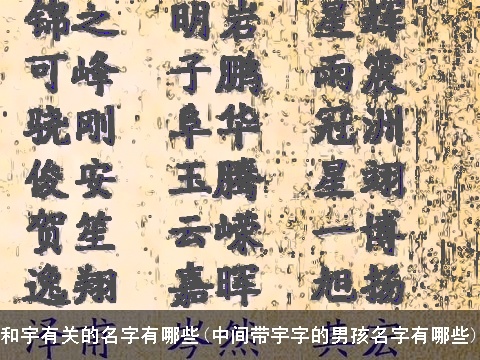 锦之 明岩 星辉
可峰 子鹏 雨震
骁刚 阜华 冠洲
俊安 玉腾 星翊
贺笙 云嵘 一博
逸翔 嘉晖 旭扬
和宇有关的名字有哪些(中间带宇字的男孩名字有哪些)